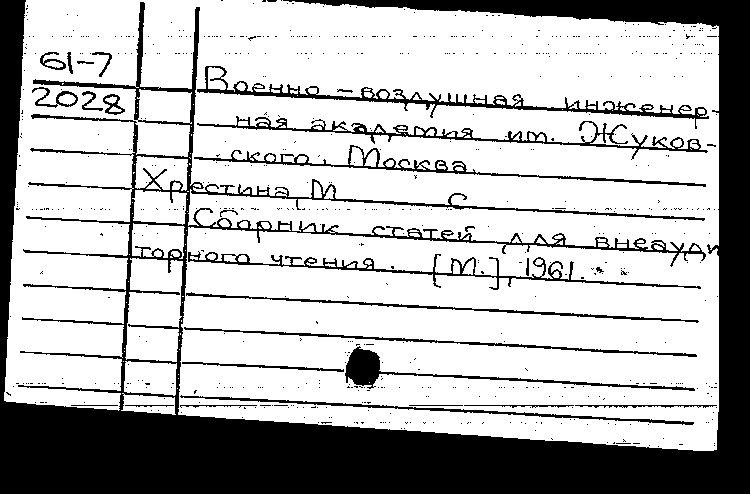 61-7
2028
Военно-воздушная инженер-
ная академия им. Жуков-
ского. Москва.
Хрестина, М С
Сборник статей для внеауди
торного чтения. [М.], 1961.